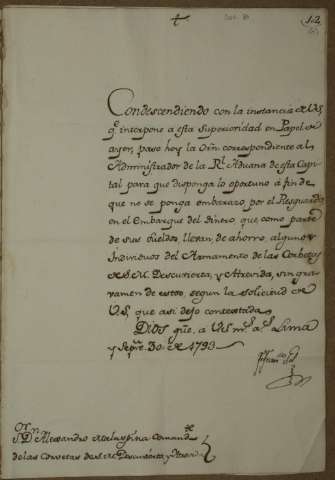 12
Condescendiendo con la instancia de V.S.
qe interpone a esta Superioridad en Papel de
ayer, paso hoy la Orñ correspondiente al
Administrador de la Rl Aduana de esta Capi-
tal para que disponga lo oportuno á fin de
que no se ponga embarazo por el Resguardo
en el Embarque del dinero, que como parte
de sus sueldos llevan de ahorro, algunos
Individuos del Armamento de las Corbetas
de S.M. Descuvierta, y Atrevida, sin gra-
vamen de estos, segun la solicitud de
V.S. que asi dejo contestada.
Dios gũe. a V.S. ms as Lima
y Sepre. 30. de 1793
S.D. Alexandro Malaspina Comande
de las Corvetas de S.M. Descuvierta y Atrevida